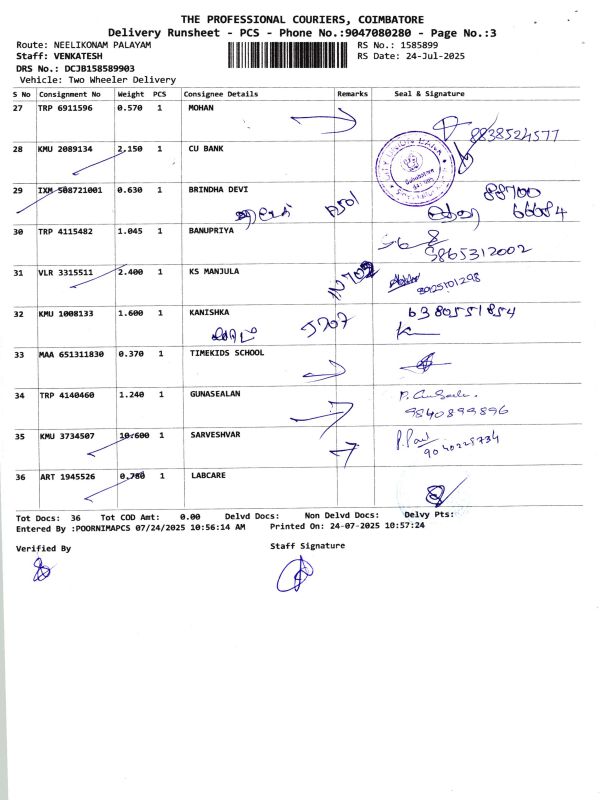 THE PROFESSIONAL COURIERS, COIMBATORE
Delivery Runsheet - PCS - Phone No.:9047080280 - Page No.:3
Route: NEELIKONAM PALAYAM RS No.: 1585899
Staff: VENKATESH RS Date: 24-Jul-2025
DRS No.: DCJB158589903
Vehicle: Two Wheeler Delivery
S No Consignment No Weight PCS Consignee Details Remarks Seal & Signature
27 TRP 6911596 0.570 1 MOHAN
8838524577
28 KMU 2089134 2.150 1 CU BANK
CITY UNION BANK
29 IXM 508721001 0.630 1 BRINDHA DEVI
A501 66684
30 TRP 4115482 1.045 1 BANUPRIYA
9865312002
31 VLR 3315511 2.400 1 KS MANJULA
32 KMU 1008133 1.600 1 KANISHKA 6380551854
J707
33 MAA 651311830 0.370 1 TIMEKIDS SCHOOL
34 TRP 4140460 1.240 1 GUNASEALAN
9840899896
35 KMU 3734507 10.600 1 SARVESHVAR P. Paul
36 ART 1945526 0.780 1 LABCARE
Tot Docs: 36 Tot COD Amt: 0.00 Delvd Docs: Non Delvd Docs: Delvy Pts:
Entered By :POORNIMAPCS 07/24/2025 10:56:14 AM Printed On: 24-07-2025 10:57:24
Verified By Staff Signature